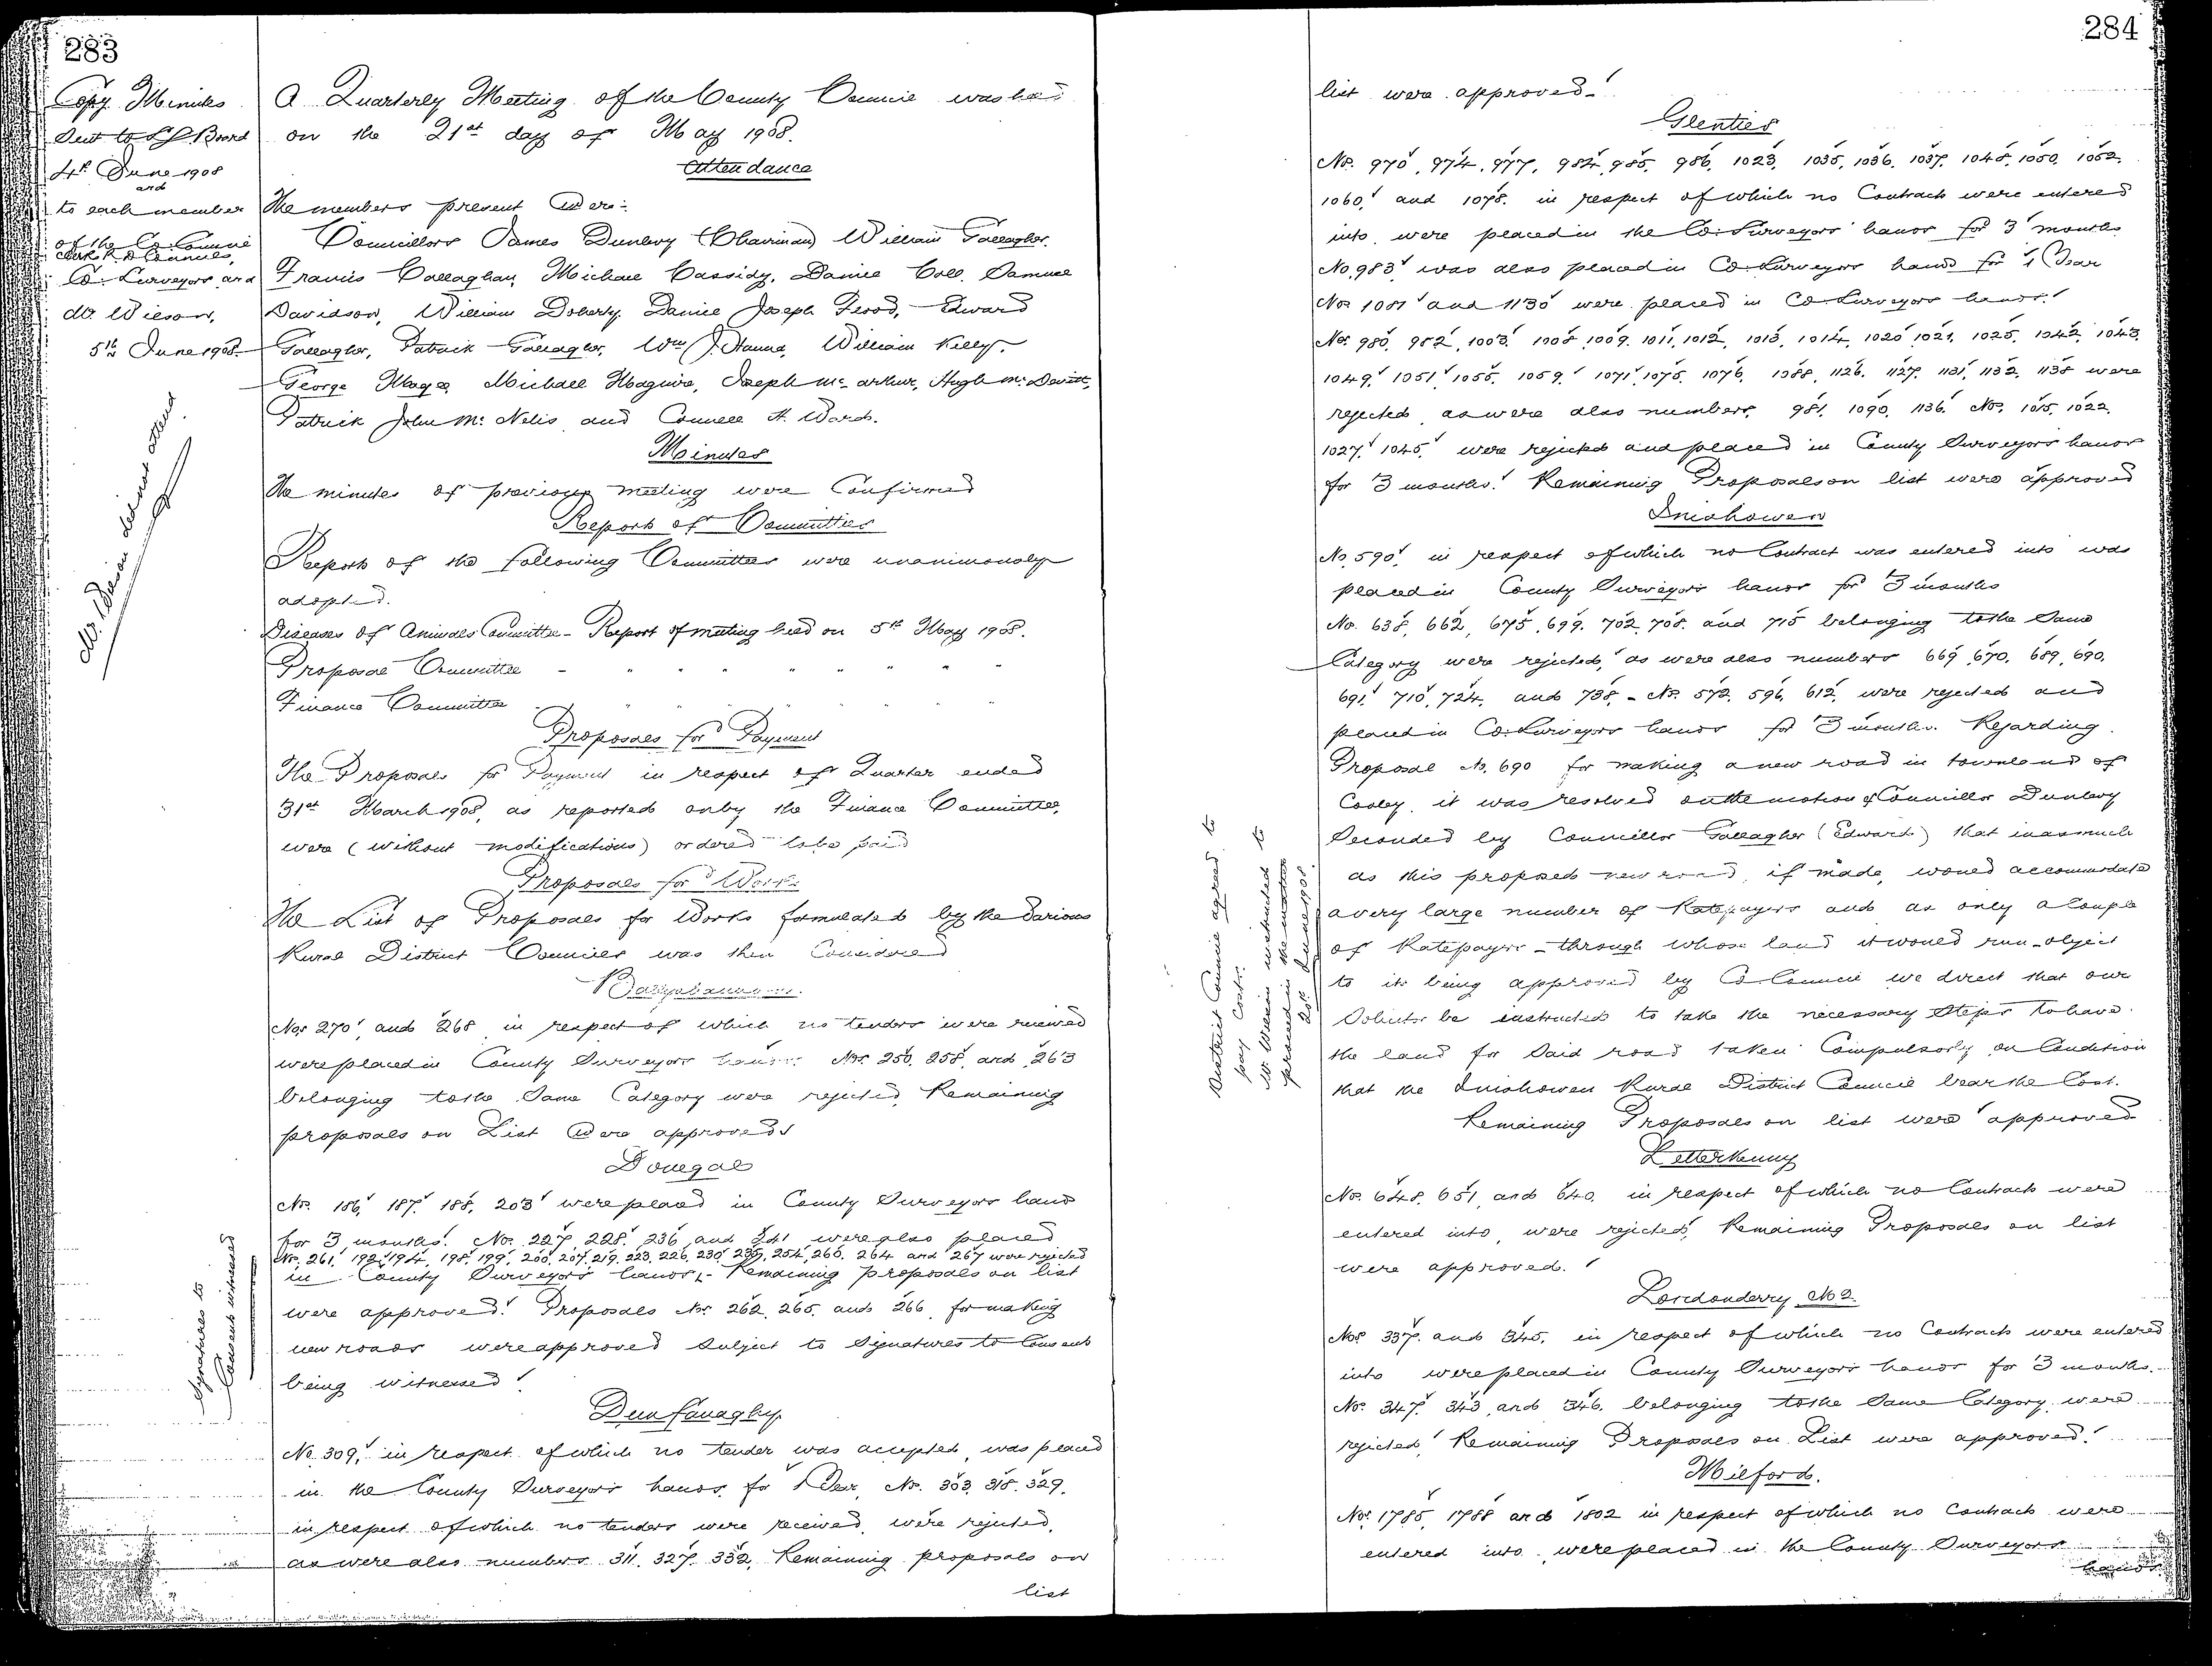 283
Copy Minutes
Sent to L G Board
4th June 1908
and
to each member
of the Co. Council
Clerk R. D. Councils,
Co. Surveyor and
Mr. Wilson,
5th June 1908
A Quarterly Meeting of the County Council was held
on the 21st day of May 1908.
Attendance
The members present were:
Councillors James Dunlevy (Chairman) William Gallagher.
Francis Callaghan, Michael Cassidy, Daniel Coll, Samuel
Davidson, William Doherty, Daniel Joseph Flood, Edward
Gallagher, Patrick Gallagher, Wm J. Hanna, William Kelly,
George Magee, Michael Maguire, Joseph McArthur, Hugh McDevitt,
Patrick John McNelis and Connell H. Ward.
Minutes
The minutes of previous meeting were Confirmed
Reports of Committees
Reports of the following Committees were unanimously
adopted.
Diseases of Animals Committee - Report of meeting held on 5th May 1908.
Proposal Committee - " " " " " " "
Finance Committee - " " " " " " "
Proposals for Payment
The Proposals for Payment in respect of Quarter ended
31st March 1908, as reported on by the Finance Committee,
were (without modifications) ordered to be paid
Proposals for Works
The List of Proposals for Works formulated by the Various
Rural District Councils was then Considered
Ballyshannon.
Nos 270 and 268 in respect of which no tenders were received
were placed in County Surveyors hands. Nos. 250, 258, and 263
belonging to the Same Category were rejected, Remaining
proposals on List were approved
Donegal
Nos. 186, 187, 188, 203 were placed in County Surveyors hands
for 3 months. Nos. 227, 228, 236 and 241 were also placed
Nos. 261, 192, 194, 198, 199, 200, 207, 219, 223, 226, 230, 239, 254, 260, 264 and 267 were rejected
in County Surveyors hands, - Remaining proposals on list
were approved. Proposals Nos. 262, 265, and 266, for making
new roads were approved Subject to Signatures to Consents
being witnessed
Signatures to
Consents witnessed
Dunfanaghy.
No. 309, in respect of which no tender was accepted, was placed
in the County Surveyors hands for 1 Year, Nos. 303, 318, 329,
in respect of which no tenders were received, were rejected,
as were also numbers 311, 327, 332, Remaining proposals on
list
284
list were approved.
Glenties
Nos. 970, 974, 977, 984, 985, 986, 1023, 1035, 1036, 1037, 1048, 1050, 1052,
1060, and 1078, in respect of which no Contracts were entered
into, were placed in the Co. Surveyors hands for 3 months
No. 983 was also placed in Co. Surveyors hands for 1 Year
Nos 1081 and 1130 were placed in Co. Surveyors hands.
Nos. 980, 982, 1003, 1008, 1009, 1011, 1012, 1013, 1014, 1020, 1021, 1025, 1042, 1043,
1049, 1051, 1055, 1059, 1071, 1075, 1076, 1088, 1126, 1127, 1131, 1132, 1138 were
rejected as were also numbers, 981, 1090, 1136. Nos. 1015, 1022,
1027, 1045, were rejected and placed in County Surveyors hands
for 3 months. Remaining Proposals on list were approved
Inishowen
No. 590, in respect of which no Contract was entered into was
placed in County Surveyors hands for 3 months
Nos. 638, 662, 675, 699, 702, 708, and 715 belonging to the Same
Category were rejected, as were also numbers 669, 670, 689, 690,
691, 710, 724, and 738, - Nos. 572, 596, 612, were rejected and
placed in Co. Surveyors hands for 3 months. Regarding
Proposal No. 690 for making a new road in townland of
Cooley, it was resolved on the motion of Councillor Dunlevy
Seconded by Councillor Gallagher (Edward) that inasmuch
as this proposed new road, if made, would accommodate
a very large number of Ratepayers and as only a Couple
of Ratepayers - through whose land it would run - object
to its being approved by Co. Council we direct that our
Solicitor be instructed to take the necessary Steps to have
the land for Said road taken Compulsorily on Condition
that the Inishowen Rural District Council bear the Cost.
District Council agreed to
pay Costs.
Mr Wilson instructed to
proceed in the matter
20th June 1908.
Remaining Proposals on list were approved
Letterkenny
Nos. 648, 651, and 640, in respect of which no Contracts were
entered into, were rejected, Remaining Proposals on list
were approved.
Londonderry No 2.
Nos. 337, and 345, in respect of which no Contracts were entered
into were placed in County Surveyors hands for 3 months.
Nos. 347, 343, and 346, belonging to the Same Category were
rejected, Remaining Proposals on List were approved.
Milford.
Nos. 1785, 1788 and 1802 in respect of which no Contracts were
entered into, were placed in the County Surveyors
hands